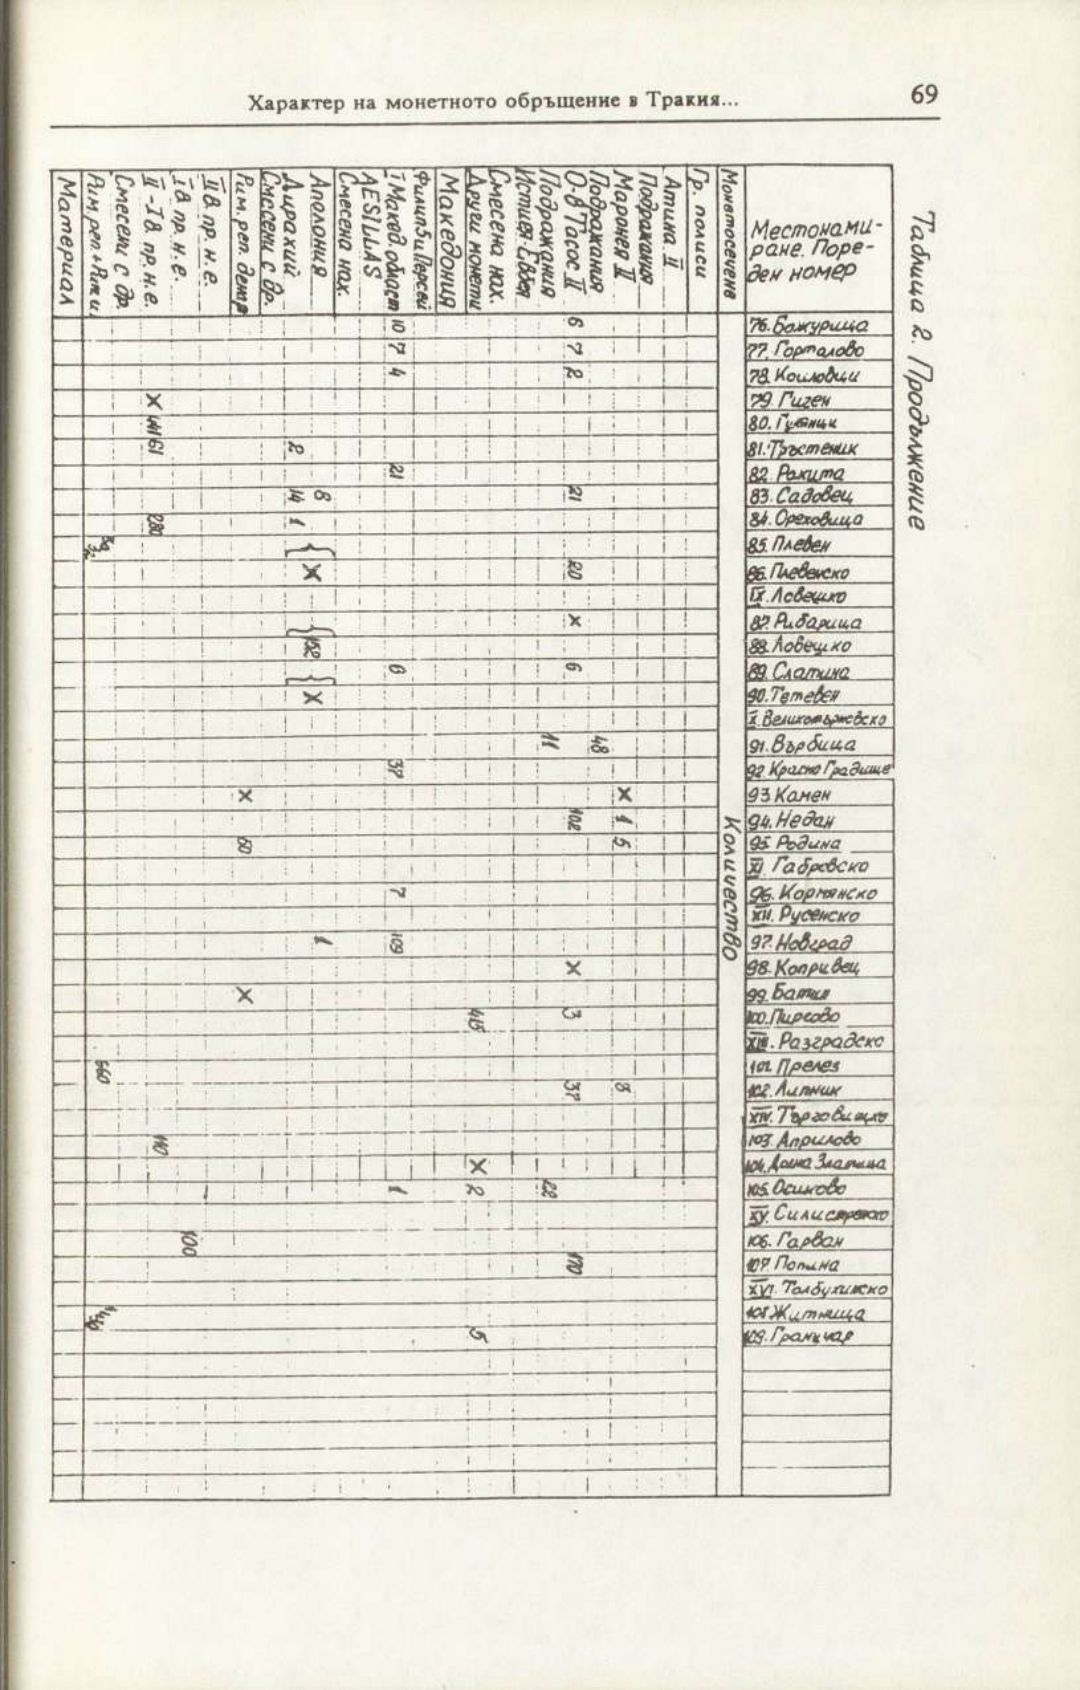 Характер на монетното обръщение в Тракия...
69
Таблица 2. Продължение
Местонами-
ране. Поре-
ден номер
Монетосечене
Гр. полиси
Атина II
Подражания
Маронея II
Подражания
О-в Тасос II
Подражания
Истиея-Евбея
Смесена нах.
Други монети
Македония
Филип 5 и Персей
I Макед. област
AESILLAS
Смесена нах.
Аполония
Дирахий
Смесени с др.
Рим. реп. денар
II в. пр. н. е.
I в. пр. н. е.
II - I в. пр. н. е.
Смесени с др.
Рим. реп. + Рим. и.
Материал
Количество
76. Божурица 6 10
77. Горталово 7 7
78. Коиловци 2 4
79. Гиген X
80. Гулянци
81. Тръстеник 2
82. Ракита 21
83. Садовец 21 8 14
84. Ореховица 1 280
85. Плевен
86. Плевенско 20 X
IX. Ловешко
87. Рибарица X
88. Ловешко 152
89. Слатина 6 6
90. Тетевен X
X. Великотърновско
91. Върбица 48 11
92. Красно Градище 37
93. Камен X X
94. Недан 1 102
95. Родина 5 60
XI. Габровско
96. Кормянско 7
XII. Русенско
97. Новград 109 1
98. Копривец X
99. Батин X
100. Пиргово 3 48
XIII. Разградско
101. Прелез 660
102. Липник 8 37
XIV. Търговищко
103. Априлово 110
104. Долна Златица X
105. Осиково 22 2 1
XV. Силистренско
106. Гарван 100
107. Попина 170
XVI. Толбухинско
108. Житница
109. Граничар 5